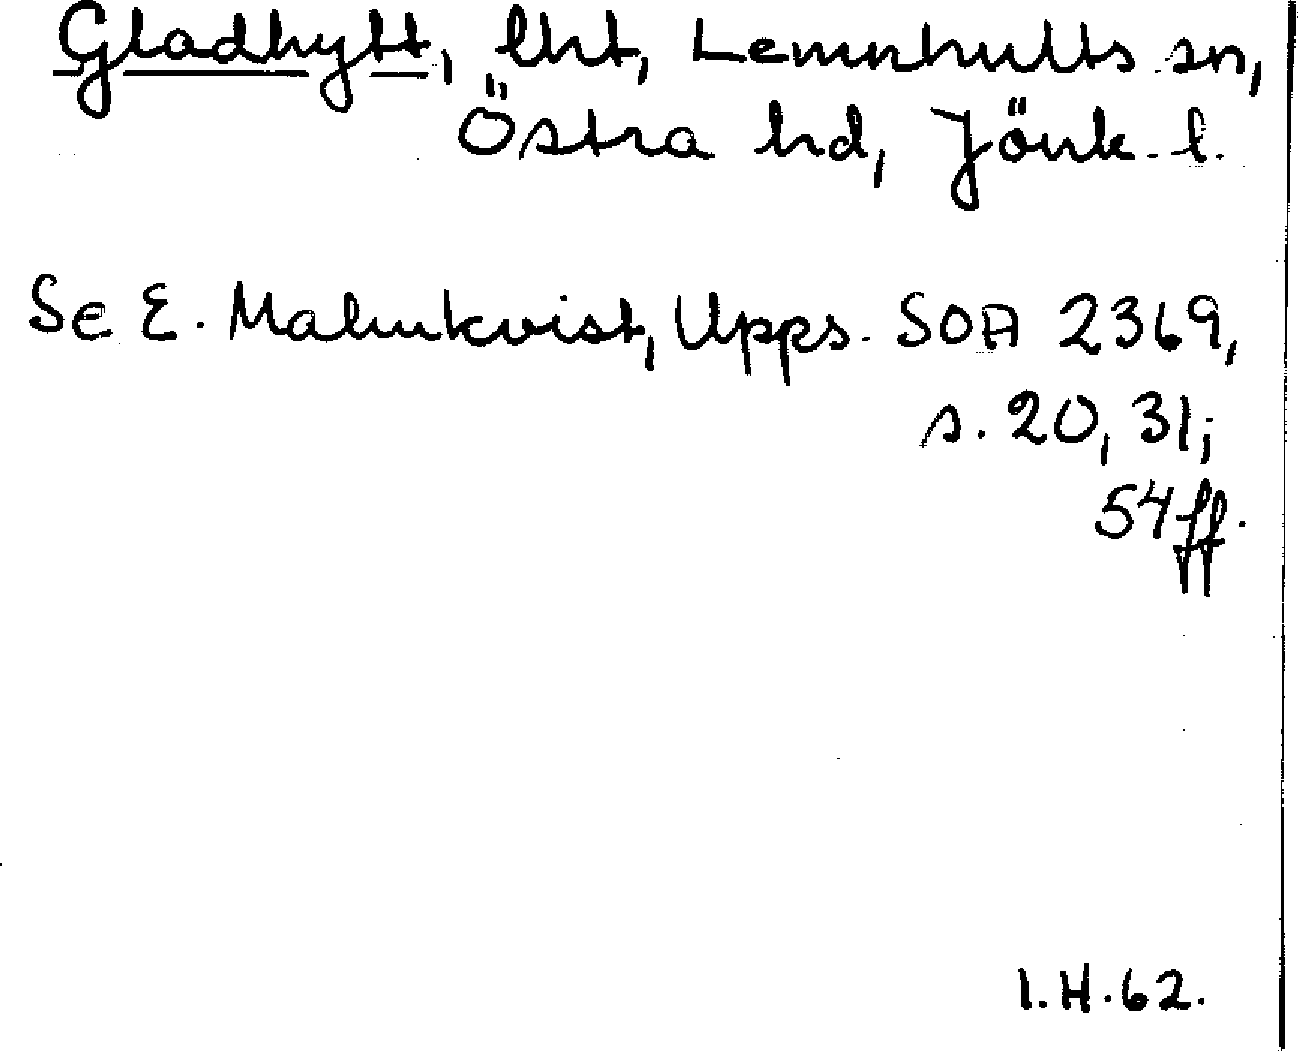 Gladhytt, lht, Lemnhults sn,
Östra hd, Jönk. l.
Se E. Malmkvist, Upps. SOA 2369,
s. 20, 31;
54 ff.
I.H.62.